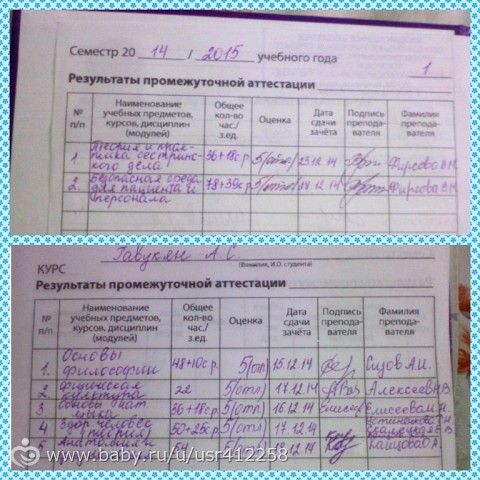 Семестр 20 14 / 2015 учебного года
1
Результаты промежуточной аттестации
№ п/п Наименование учебных предметов, курсов, дисциплин (модулей) Общее кол-во час./ з.ед. Оценка Дата сдачи зачёта Подпись препода-вателя Фамилия препода-вателя
1. Теория и прак-
тика сестринс-
кого дела 36+18с.р. 5(отл) 23.12.14 Фирсова В.М.
2. Безопасная среда
для пациента и
персонала 78+39с.р. 5(отл) 12.14 Фирсова В.М.
Гавукян А.С.
КУРС (Фамилия, И.О. студента)
Результаты промежуточной аттестации
№ п/п Наименование учебных предметов, курсов, дисциплин (модулей) Общее кол-во час./ з.ед. Оценка Дата сдачи зачёта Подпись препода-вателя Фамилия препода-вателя
1. Основы
философии 48+10с.р. 5(отл) 15.12.14 А.И.
2. Физическая
культура 22 5(отл) 17.12.14 Алексеев
3 Основы лат
языка 36+18с.р. 5(отл) 16.12.14 Елисеева
4 Здор. человек 50+25с.р. 5(отл) 17.12.14
5 Анатомия и 5(отл) 12.14
www.baby.ru/u/usr412258